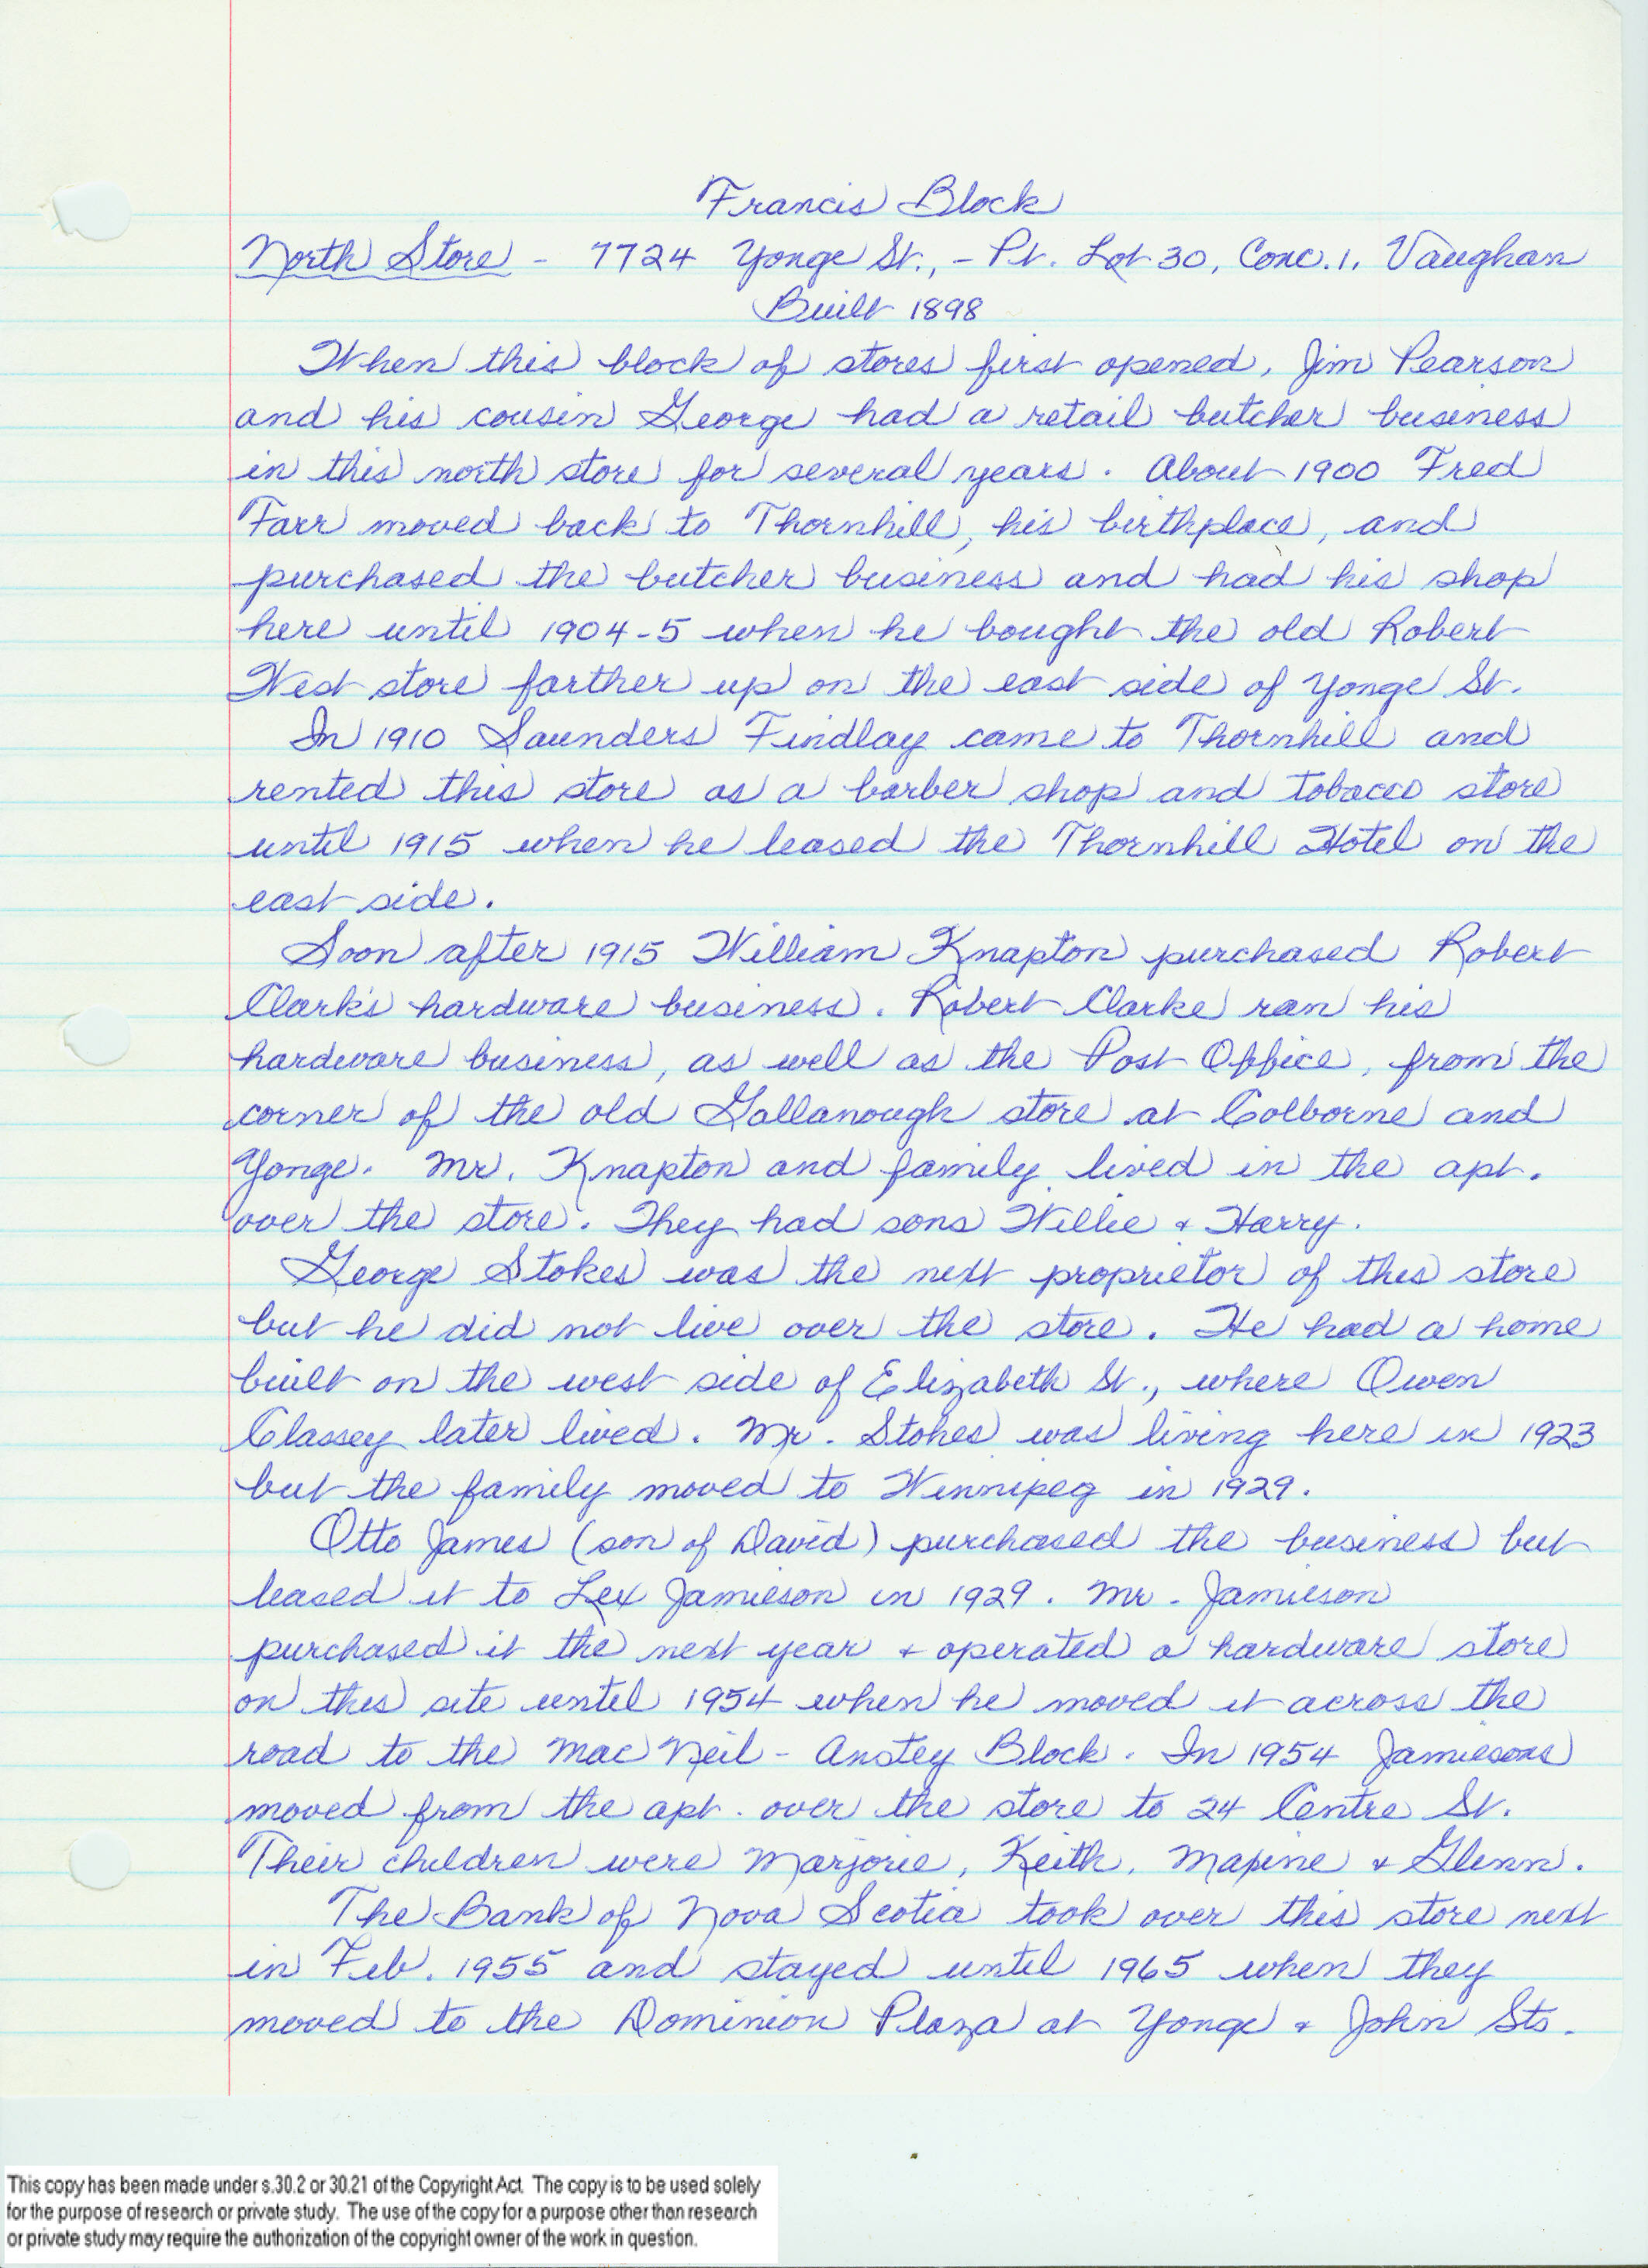 Francis Block
North Store - 7724 Yonge St., - Pt. Lot 30, Conc. 1, Vaughan
Built 1898
When this block of stores first opened, Jim Pearson
and his cousin George had a retail butcher business
in this north store for several years. About 1900 Fred
Farr moved back to Thornhill, his birthplace, and
purchased the butcher business and had his shop
here until 1904-5 when he bought the old Robert
West store farther up on the east side of Yonge St.
In 1910 Saunders Findlay came to Thornhill and
rented this store as a barber shop and tobacco store
until 1915 when he leased the Thornhill Hotel on the
east side.
Soon after 1915 William Knapton purchased Robert
Clark's hardware business. Robert Clarke ran his
hardware business, as well as the Post Office, from the
corner of the old Gallanough store at Colborne and
Yonge. Mr. Knapton and family lived in the apt.
over the store. They had sons Willie + Harry.
George Stokes was the next proprietor of this store
but he did not live over the store. He had a home
built on the west side of Elizabeth St., where Owen
Classey later lived. Mr. Stokes was living here in 1923
but the family moved to Winnipeg in 1929.
Otto James (son of David) purchased the business but
leased it to Lex Jamieson in 1929. Mr. Jamieson
purchased it the next year + operated a hardware store
on this site until 1954 when he moved it across the
road to the MacNeil - Anstey Block. In 1954 Jamiesons
moved from the apt. over the store to 24 Centre St.
Their children were Marjorie, Keith, Maxine + Glenn.
The Bank of Nova Scotia took over this store next
in Feb. 1955 and stayed until 1965 when they
moved to the Dominion Plaza at Yonge + John Sts.
This copy has been made under s.30.2 or 30.21 of the Copyright Act. The copy is to be used solely
for the purpose of research or private study. The use of the copy for a purpose other than research
or private study may require the authorization of the copyright owner of the work in question.